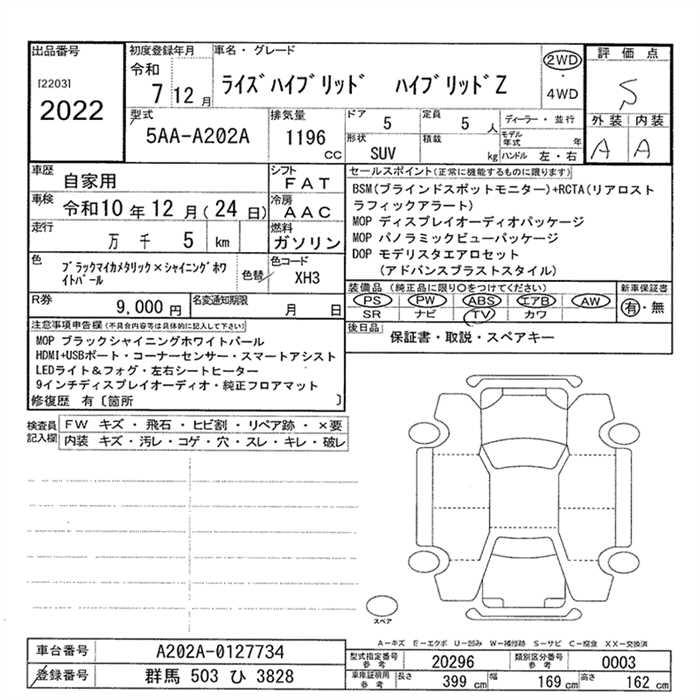 出品番号
[2203]
2022
初度登録年月
令和
7 12 月
車名・グレード
ライズハイブリッド ハイブリッドZ
2WD
・
4WD
評価点
S
外装 内装
A A
型式
5AA-A202A
排気量
1196
CC
ドア
5
定員
5 人
形状
SUV
積載
kg
ディーラー・並行
モデル
年式 年
ハンドル 左・右
車歴
自家用
シフト
FAT
車検
令和10年12月(24日)
冷房
AAC
走行
万 千 5 km
燃料
ガソリン
色
ブラックマイカメタリック×シャイニングホワ
イトパール
色替
色コード
XH3
R券
9,000 円
名変通知期限
月 日
セールスポイント(正常に機能するものに限ります)
BSM(ブラインドスポットモニター)+RCTA(リアクロスト
ラフィックアラート)
MOP ディスプレイオーディオパッケージ
MOP パノラミックビューパッケージ
DOP モデリスタエアロセット
(アドバンスブラストスタイル)
装備品(純正品に限り○をつけてください)
PS PW ABS エアB AW
SR ナビ TV カワ
新車保証書
有・無
後日品
保証書・取説・スペアキー
注意事項申告欄(不具合内容等は具体的に記入して下さい)
MOP ブラックシャイニングホワイトパール
HDMI+USBポート・コーナーセンサー・スマートアシスト
LEDライト&フォグ・左右シートヒーター
9インチディスプレイオーディオ・純正フロアマット
修復歴 有〔箇所 〕
検査員
記入欄
FW キズ・飛石・ヒビ割・リペア跡・×要
内装 キズ・汚レ・コゲ・穴・スレ・キレ・破レ
スペア
A-キズ E-エクボ U-凹み W-補修跡 S-サビ C-腐食 XX-交換済
車台番号
A202A-0127734
登録番号
群馬 503 ひ 3828
型式指定番号
参考
20296
類別区分番号
参考
0003
車庫証明用
参考
長さ
399 cm
幅
169 cm
高さ
162 cm